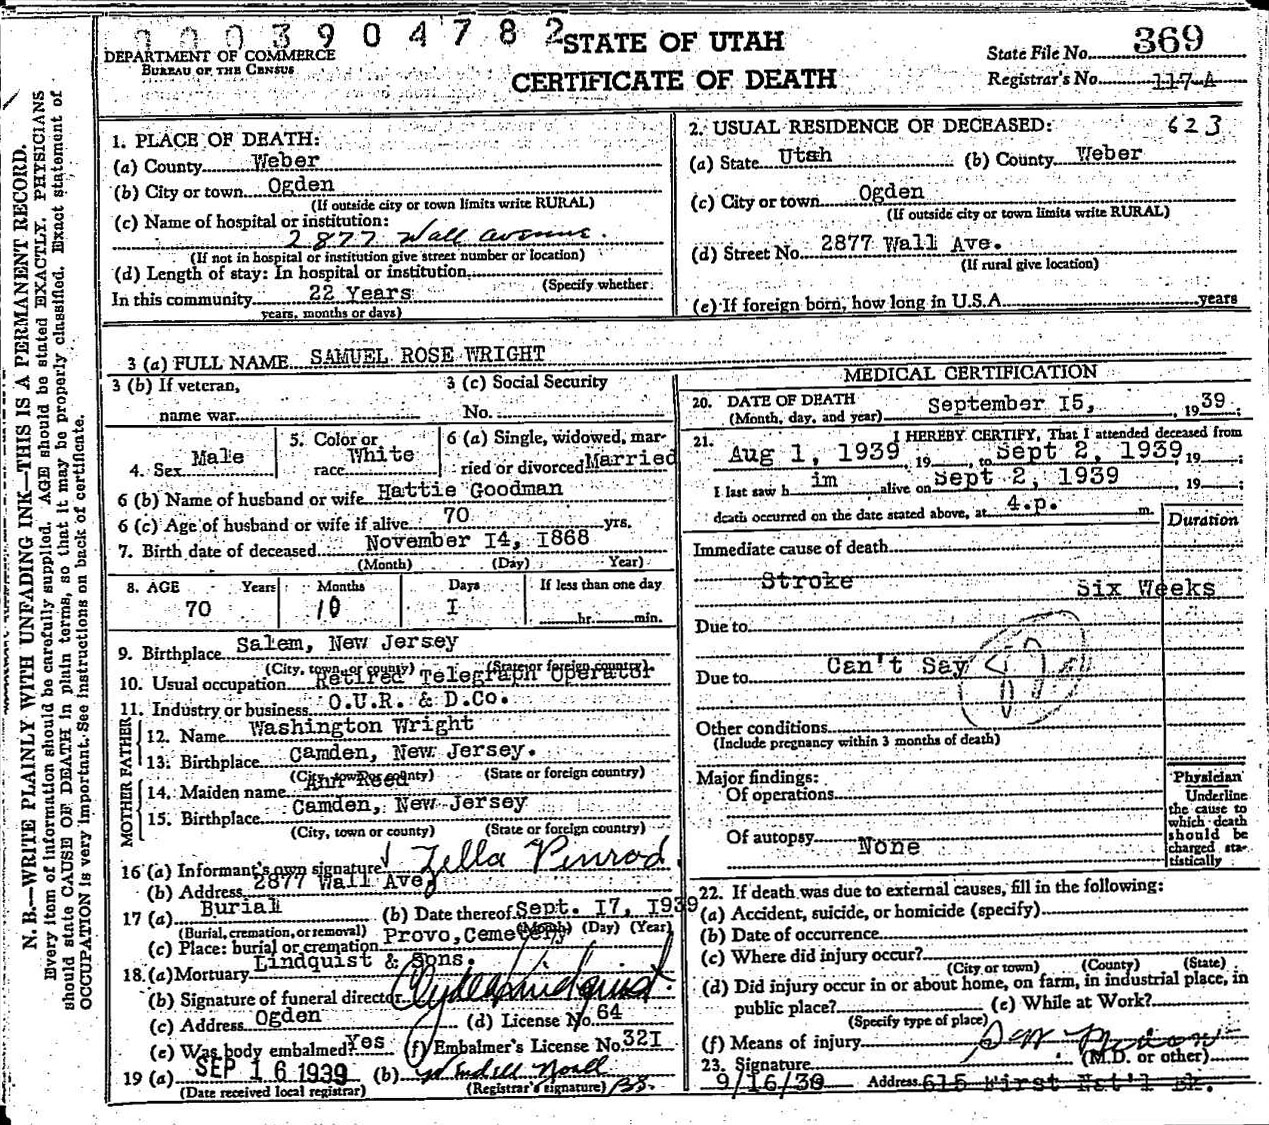 0003904782
STATE OF UTAH
CERTIFICATE OF DEATH
DEPARTMENT OF COMMERCE
BUREAU OF THE CENSUS
State File No. 369
Registrar's No. 117-A
N. B.—WRITE PLAINLY WITH UNFADING INK—THIS IS A PERMANENT RECORD.
Every item of information should be carefully supplied. AGE should be stated EXACTLY. PHYSICIANS
should state CAUSE OF DEATH in plain terms, so that it may be properly classified. Exact statement of
OCCUPATION is very important. See instructions on back of certificate.
1. PLACE OF DEATH:
(a) County Weber
(b) City or town Ogden
(If outside city or town limits write RURAL)
(c) Name of hospital or institution:
2877 Wall Avenue.
(If not in hospital or institution give street number or location)
(d) Length of stay: In hospital or institution
(Specify whether
In this community 22 Years
years, months or days)
2. USUAL RESIDENCE OF DECEASED: 623
(a) State Utah (b) County Weber
(c) City or town Ogden
(If outside city or town limits write RURAL)
(d) Street No. 2877 Wall Ave.
(If rural give location)
(e) If foreign born, how long in U.S.A. years
3 (a) FULL NAME SAMUEL ROSE WRIGHT
3 (b) If veteran,
name war
3 (c) Social Security
No.
4. Sex Male
5. Color or
race White
6 (a) Single, widowed, mar-
ried or divorced Married
6 (b) Name of husband or wife Hattie Goodman
6 (c) Age of husband or wife if alive 70 yrs.
7. Birth date of deceased November I4, I868
(Month) (Day) Year)
8. AGE Years Months Days If less than one day
70 10 I hr. min.
9. Birthplace Salem, New Jersey
(City, town, or county) (State or foreign country)
10. Usual occupation Retired Telegraph Operator
11. Industry or business O.U.R. & D.Co.
FATHER
12. Name Washington Wright
13. Birthplace Camden, New Jersey.
(City, town or county) (State or foreign country)
MOTHER
14. Maiden name Ann Reed
15. Birthplace Camden, New Jersey
(City, town or county) (State or foreign country)
16 (a) Informant's own signature Zella Penrod
(b) Address 2877 Wall Ave
17 (a) Burial (b) Date thereof Sept. I7, I939
(Burial, cremation, or removal) (Month) (Day) (Year)
(c) Place: burial or cremation Provo, Cemetery
18. (a) Mortuary Lindquist & Sons.
(b) Signature of funeral director Clyde Lindquist
(c) Address Ogden (d) License No. 64
(e) Was body embalmed? Yes (f) Embalmer's License No. 32I
19 (a) SEP 16 1939 (b) Wendell Noall BS.
(Date received local registrar) (Registrar's signature)
MEDICAL CERTIFICATION
20. DATE OF DEATH
(Month, day, and year) September I5, , 19 39;
21. I HEREBY CERTIFY, That I attended deceased from
Aug 1, 1939, 19 , to Sept 2, 1939, 19 ;
I last saw h im alive on Sept 2, 1939, 19 ;
death occurred on the date stated above, at 4.p. m.
Duration
Immediate cause of death
Stroke Six Weeks
Due to
Due to Can't Say
Other conditions
(Include pregnancy within 3 months of death)
Major findings:
Of operations
Of autopsy None
Physician
Underline
the cause to
which death
should be
charged sta-
tistically
22. If death was due to external causes, fill in the following:
(a) Accident, suicide, or homicide (specify)
(b) Date of occurrence
(c) Where did injury occur?
(City or town) (County) (State)
(d) Did injury occur in or about home, on farm, in industrial place, in
public place? (e) While at Work?
(Specify type of place)
(f) Means of injury
23. Signature (M.D. or other)
9/16/39 Address 615 First Nat'l Bk.